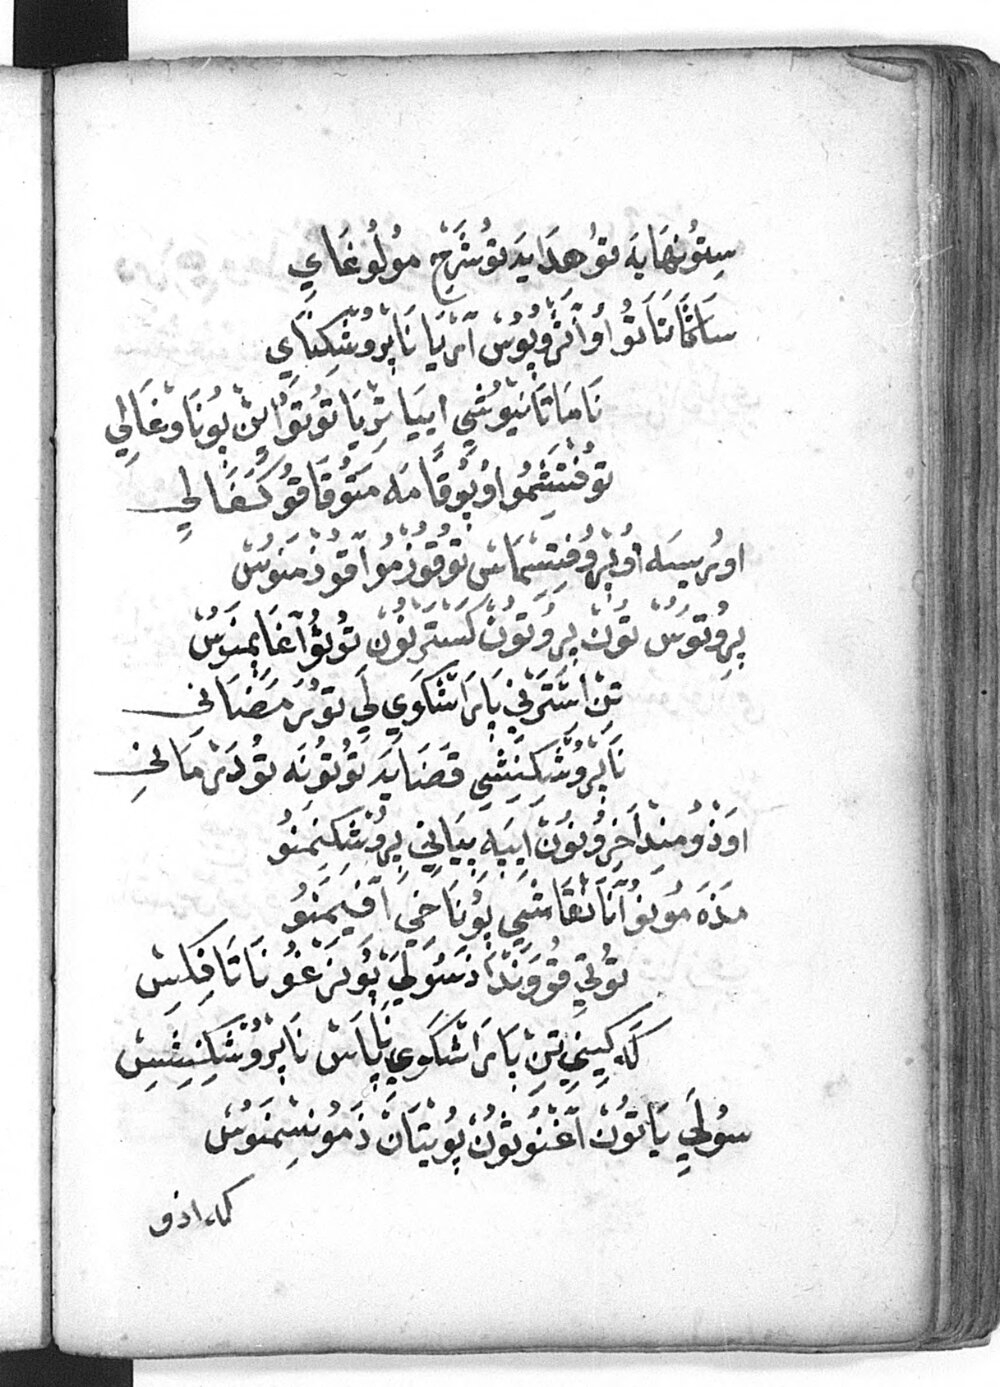 سِتُو نِهَايَه تُو هِدَايَه تُو شَرْحْ مُولُوغَايِ
سَاخْتَانَا تُو اُو آنْثْرُوپُوسْ آتْرِيَا نَا پْرُوشْكِنَايِ
نَا مَا تَانِيُوشِي اِيپِيَا تْرِيَا تُوتُو اَيِنْ پُونَا وْغَالِي
تُو فْتِشِمُو اُوپُو قَامَه مَتُو قَاقُو كَفَالِي
اُو يْرِيسَه اُو پْرُوفِتِسْمَاسْ تُو قُوزْمُو آقُوذْمَنُوسْ
پِرُوتُوسْ تُونْ پِرُوتُونْ كَسْتَرْنُونْ تُو ثُو آغَاپِمَنُوسْ
تِنْ اِسْتَرْنِي پَارَاشْكَوِي لِي تُو رَمَضَانِي
نَا پْرُوشْكِنِشِي قَضَايَه تُوتُونَه تُو دَرْمَانِي
اَوْذُومِنْدَا خْرُونُونْ اِيپَه پِيَانِي پِرُوشْكِنِمَنُو
مَذَه مُونُو آنَانْقَاشِي پُونَا خِي آفِيمَنُو
تُوتِي قُووَنْدَا ذَسُولِي پُوپَرْغُو نَا تَافِكِسْ
كَه كِينِي تِنْ پَارَاشْكَوِي نَاپَاسْ نَا پْرُوشْكِنِشِسْ
سُولِي يَا تُونْ آغْنُونُونْ پُويْتَانْ ذَمُونِسْمَنُوسْ
كه اذو